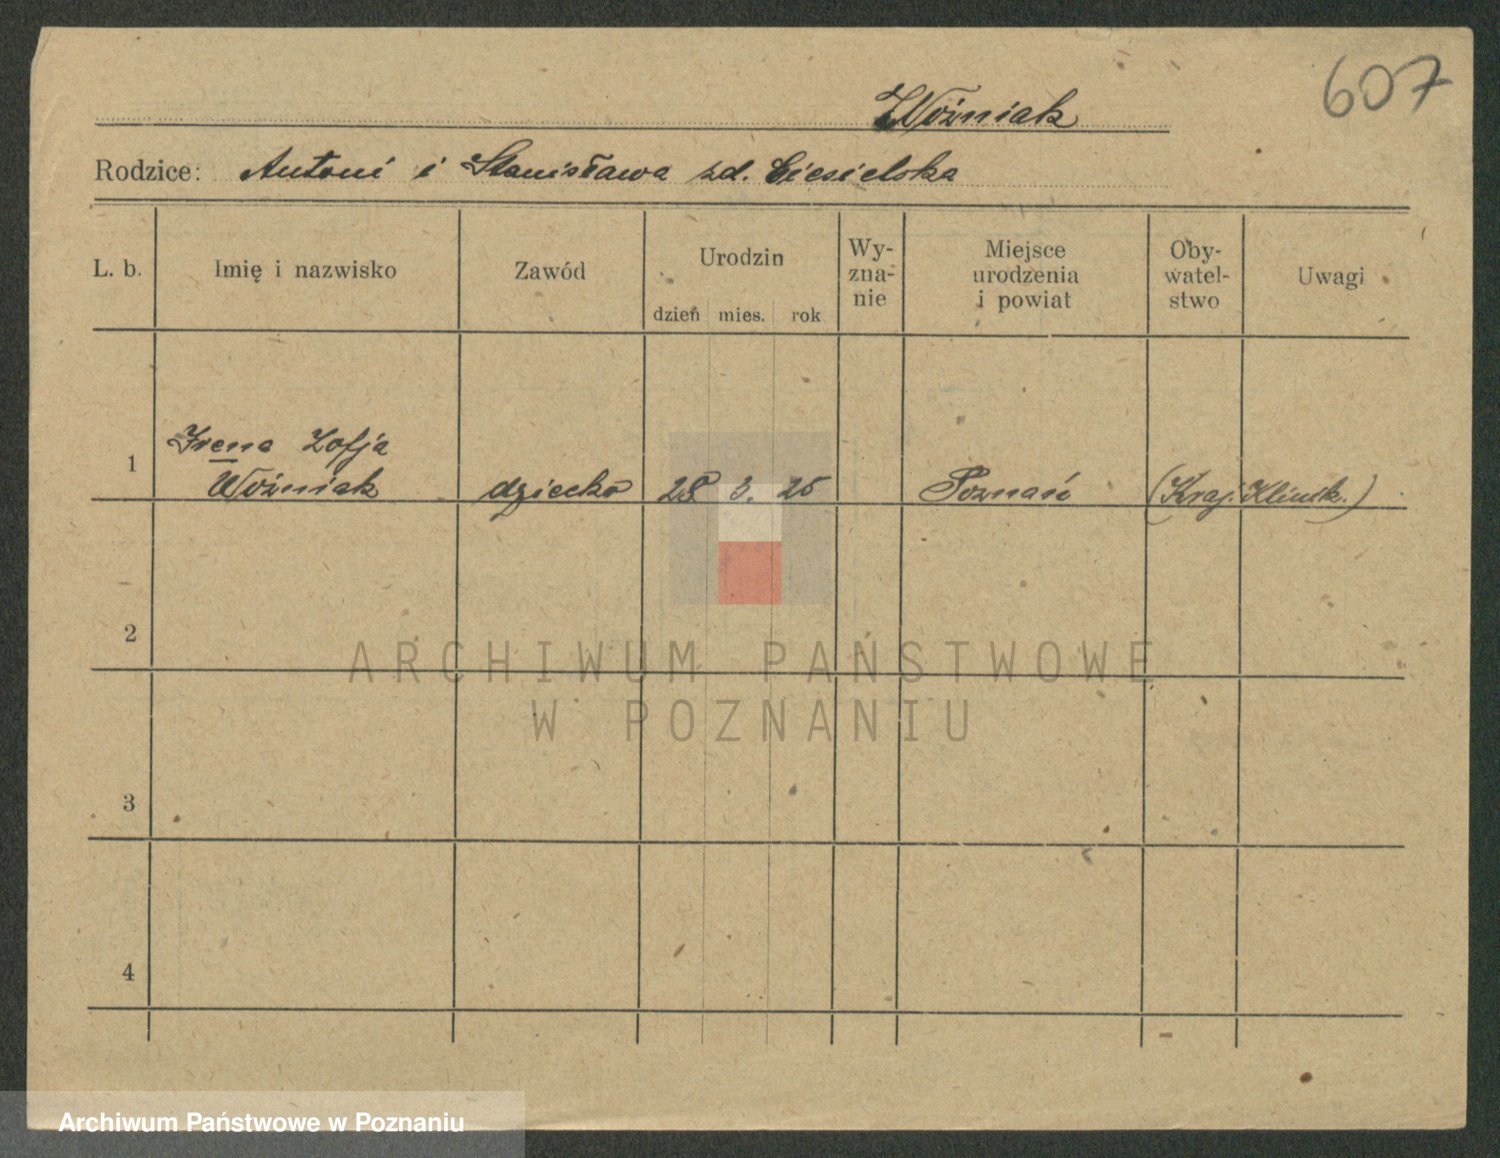 607
Woźniak
Rodzice: Antoni i Stanisława zd. Ciesielska
L. b. Imię i nazwisko Zawód Urodzin Wy- zna- nie Miejsce urodzenia i powiat Oby- watel- stwo Uwagi
dzień mies. rok
Irena Zofja
1 Woźniak dziecko 28 3. 25 Poznań (Kraj. Klinik.)
2
ARCHIWUM PAŃSTWOWE
W POZNANIU
3
4
Archiwum Państwowe w Poznaniu